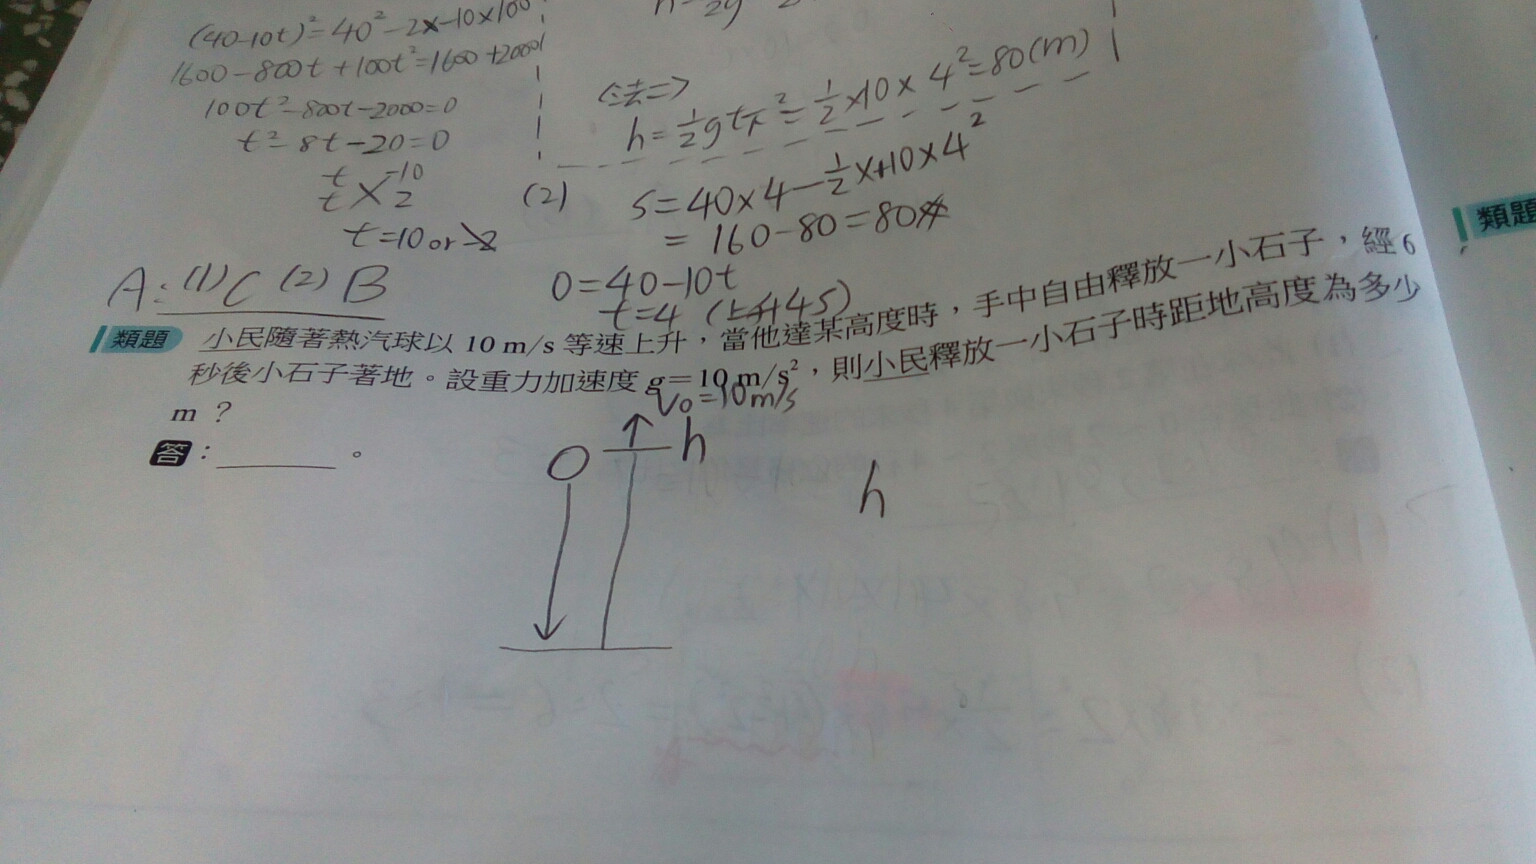 (40-10t)²=40²-2×-10×100
1600-800t+100t²=1600+2000
100t²-800t-2000=0
t²-8t-20=0
t -10
t 2
t=10 or -2
A:(1)C (2)B
<法二>
h=½gt下²=½×10×4²=80(m)
(2) S=40×4-½×10×4²
=160-80=80#
0=40-10t
t=4 (上升4s)
類題 小民隨著熱汽球以 10 m/s 等速上升，當他達某高度時，手中自由釋放一小石子，經 6
秒後小石子著地。設重力加速度 g＝10 m/s²，則小民釋放一小石子時距地高度為多少
m ？
答：＿＿＿＿。
V₀=10m/s
h
h
類題